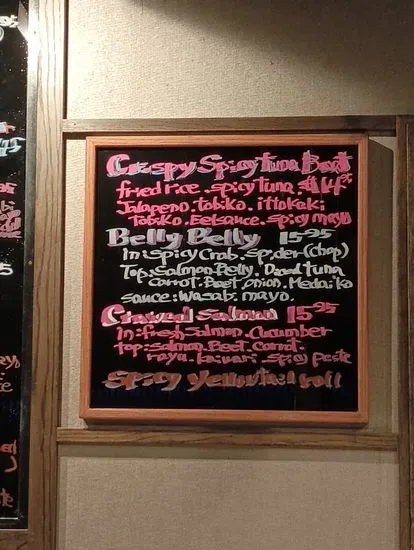 Crispy Spicy tuna Boat
fried rice. spicy tuna. $14.95
Jalapeno. tobiko. ittokaki
Tobiko. Eel sauce. spicy mayo
Belly Belly 15.95
In: spicy crab. spider (chop)
Top: salmon Belly. Diced tuna
carrot. Beet onion. Medaiko
sauce: wasabi mayo.
salmon 15.95
in: fresh salmon. cucumber
top: salmon. Beet. Carrot.
kaiwari. spicy paste
spicy yellowtail roll